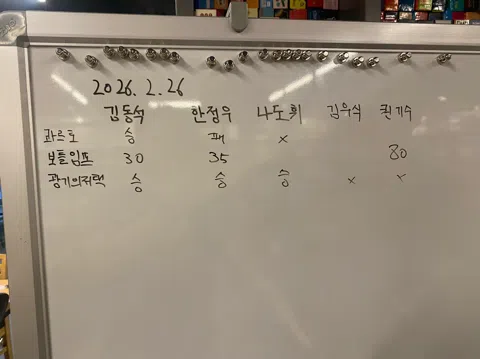 2026.2.26
김동석 한정우 나도휘 김우식 권기수
콰르토 승 패 x
보틀임프 30 35 80
광기의저택 승 승 승 x x